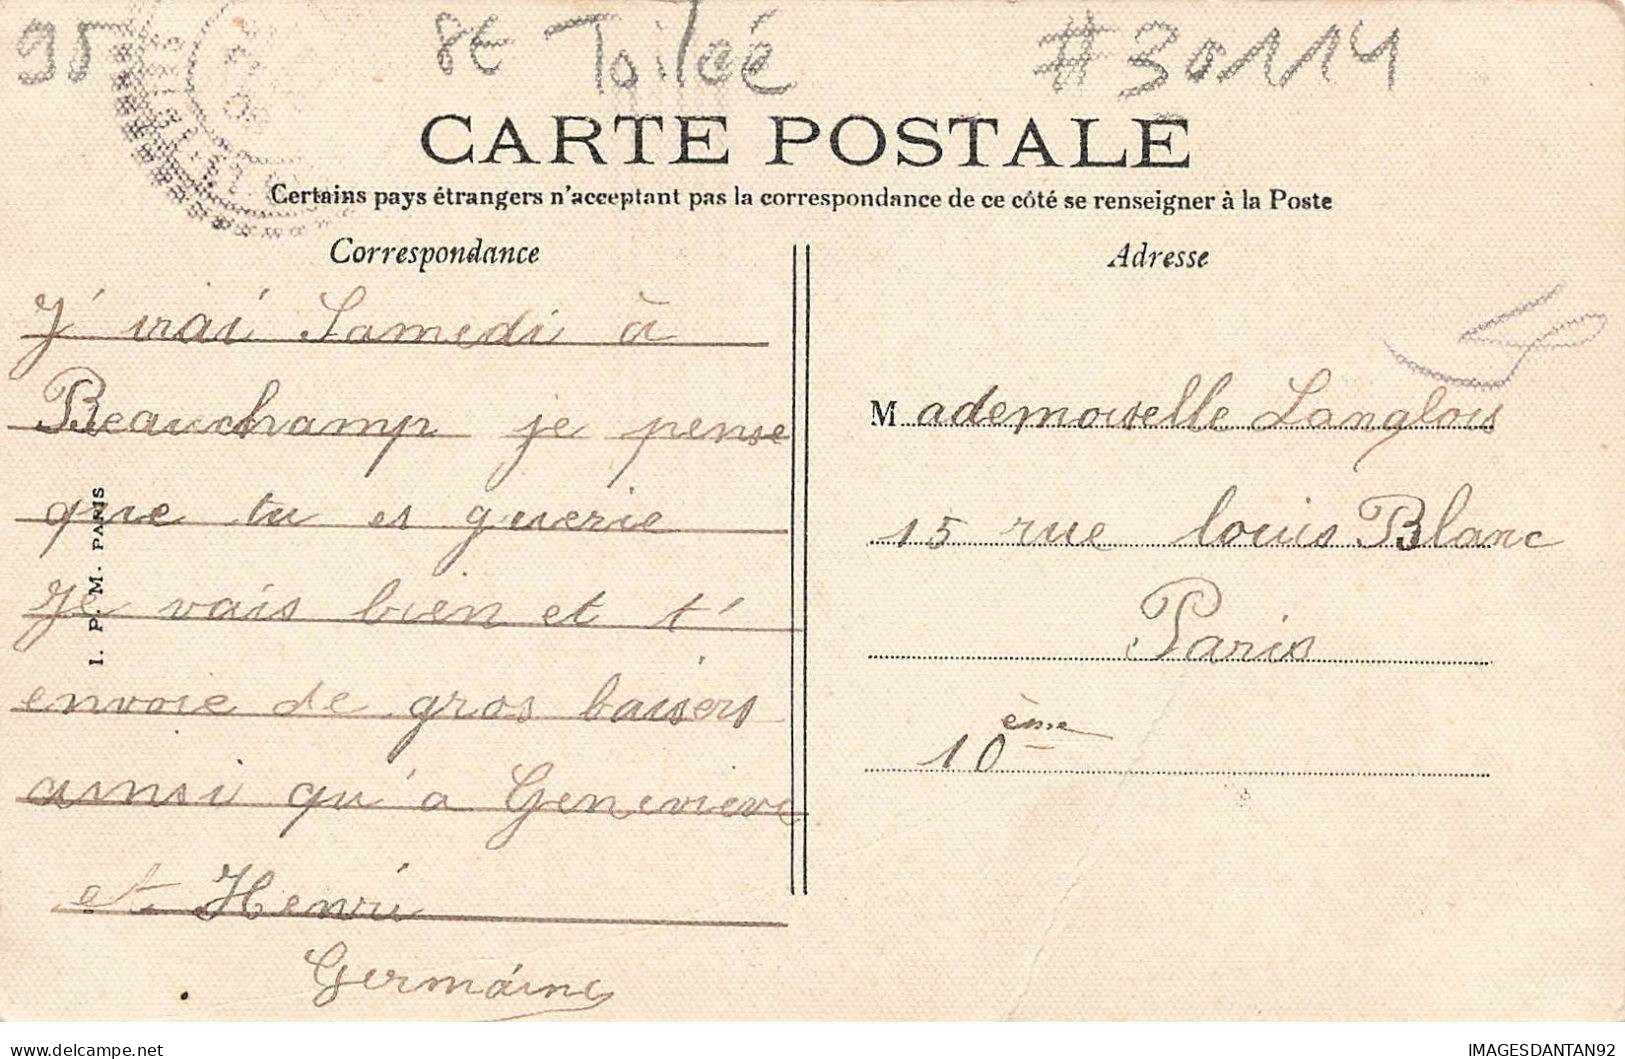 95 8€ Toilée #30114
CARTE POSTALE
Certains pays étrangers n'acceptant pas la correspondance de ce côté se renseigner à la Poste
Correspondance
J' irai Samedi à
Beauchamp je pense
que tu es guerie
Je vais bien et t'
envoie de gros baisers
ainsi qu'a Genevieve
et Henri
Germaine
I. P. M. PARIS
Adresse
Mademoiselle Langlois
15 rue louis Blanc
Paris
10ème
www.delcampe.net
IMAGESDANTAN92